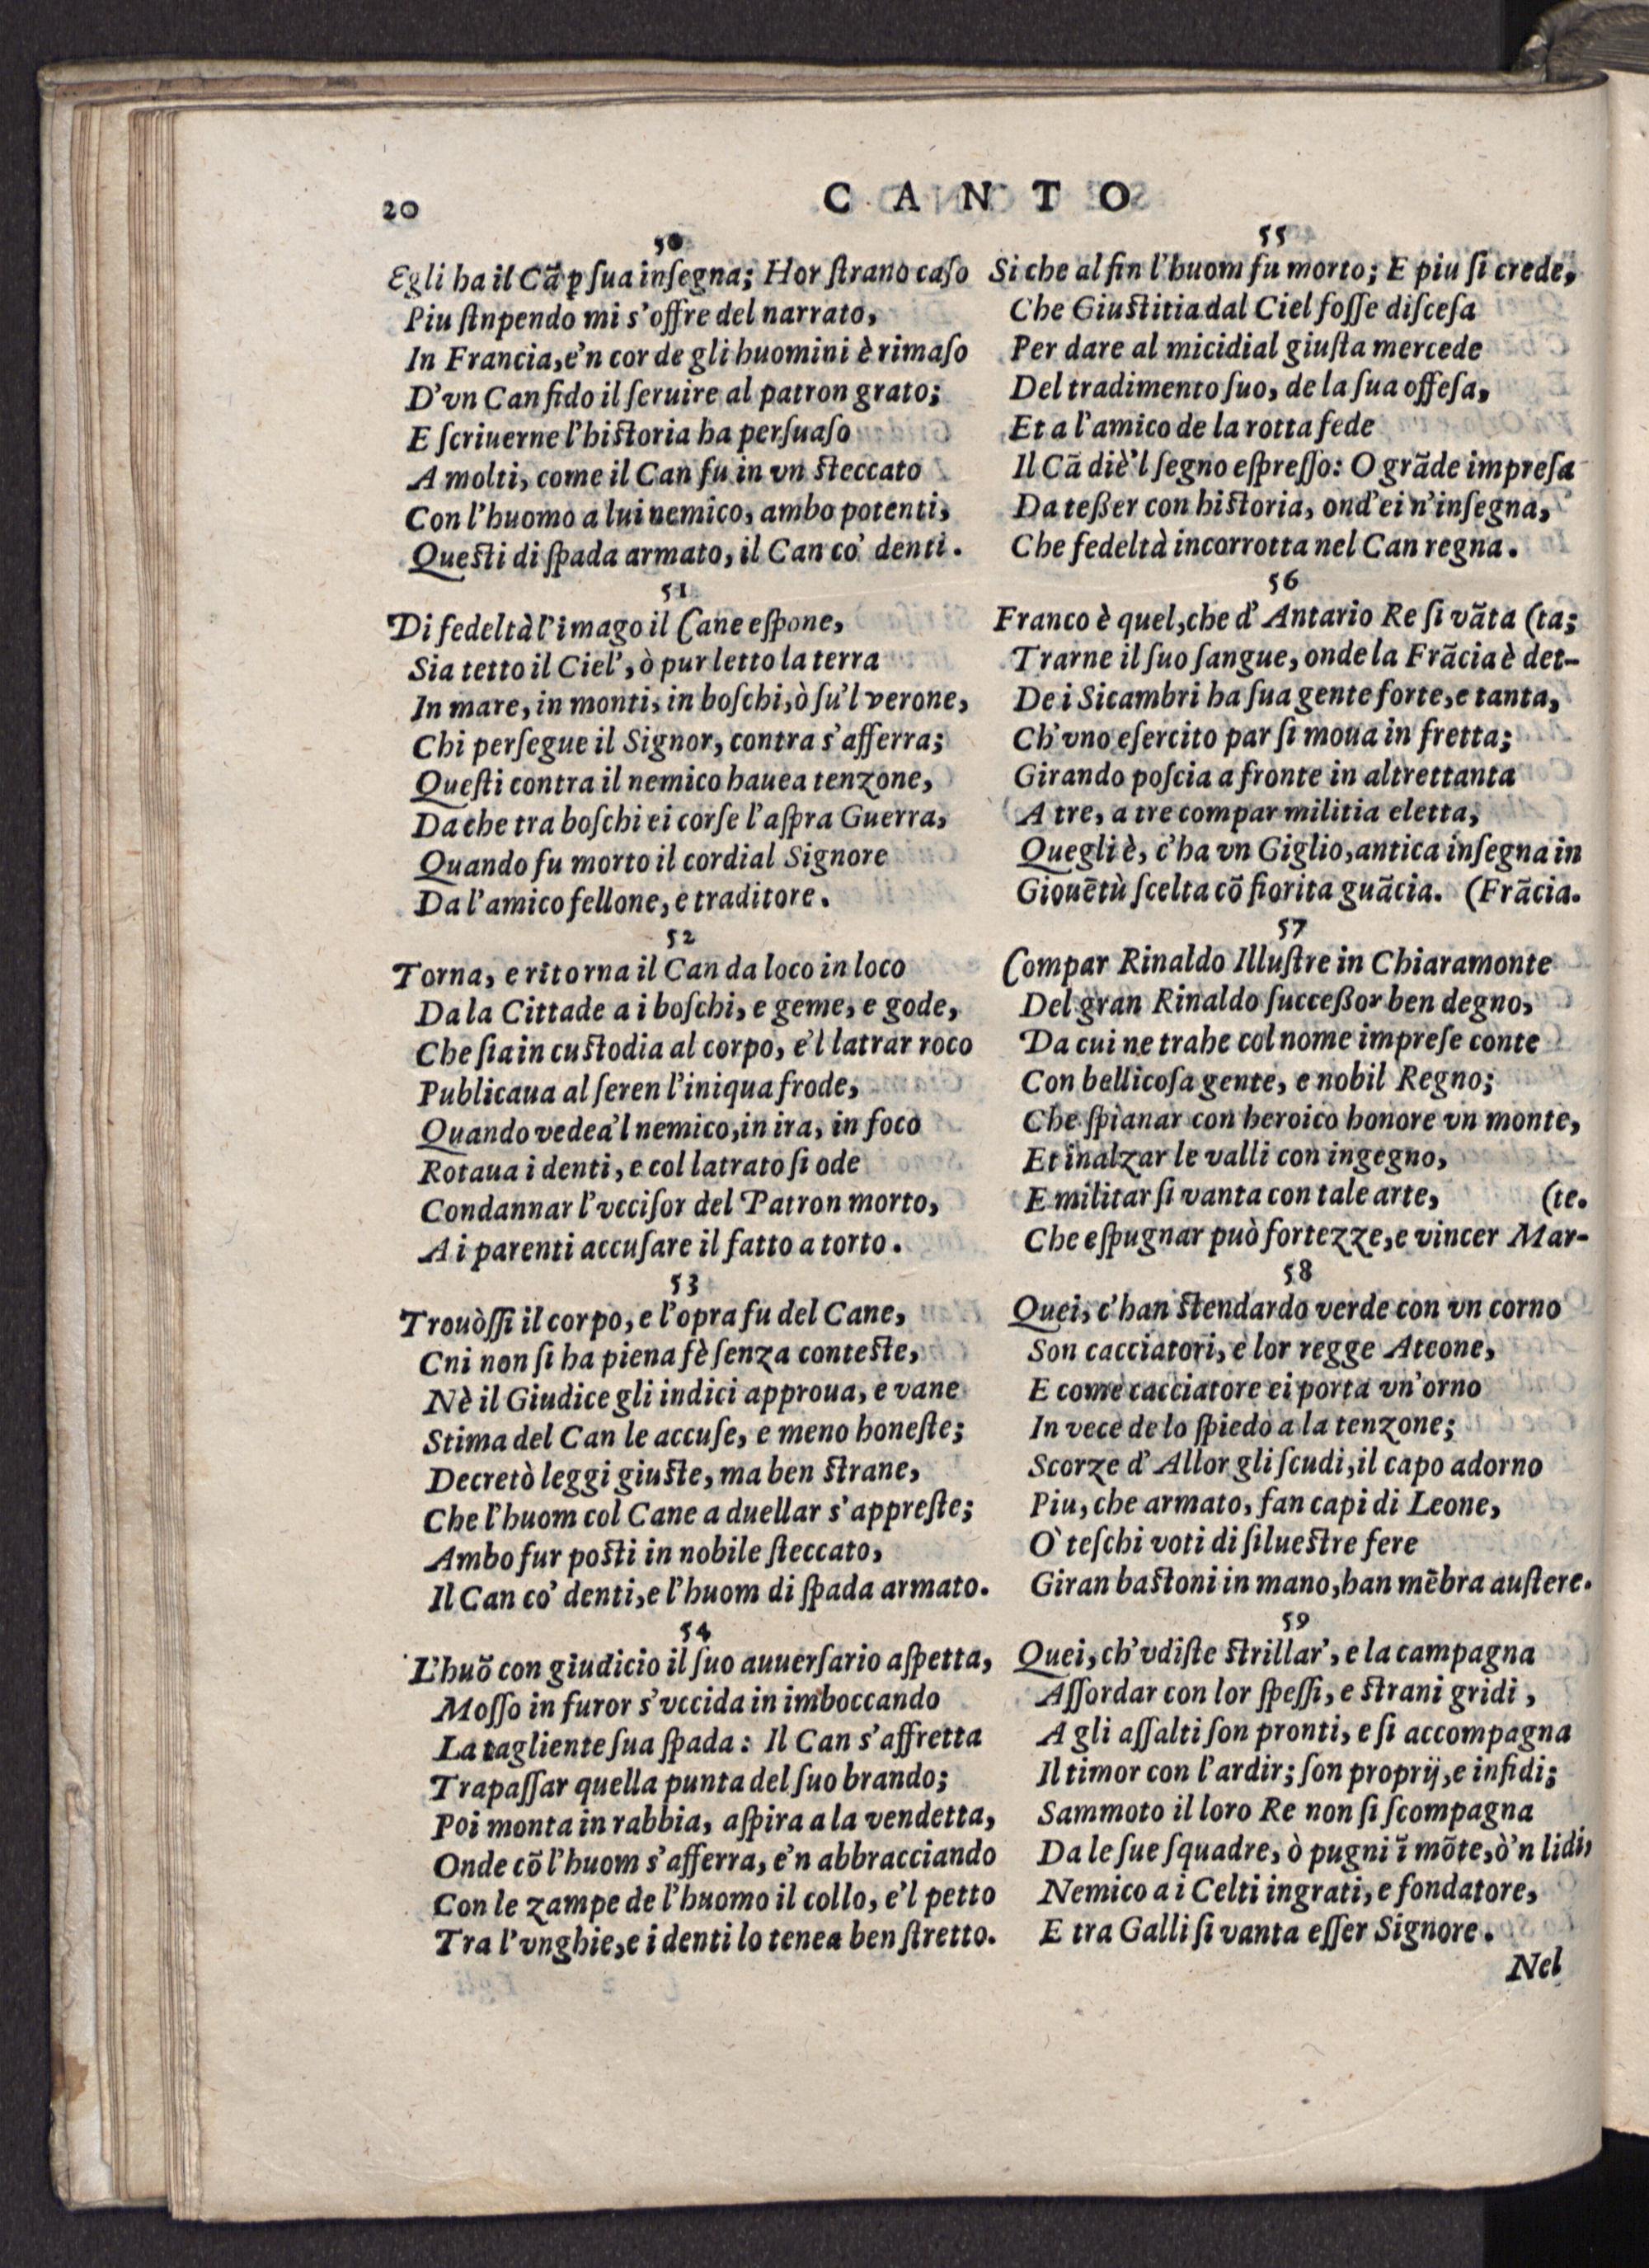 20
CANTO
50
Egli ha il Cã ꝑ ſua inſegna; Hor ſtrano caſo
Piu ſtnpendo mi s'offre del narrato,
In Francia, e'n cor de gli huomini è rimaſo
D'vn Can fido il ſeruire al patron grato;
E ſcriuerne l'hiſtoria ha perſuaſo
A molti, come il Can fu in vn ſteccato
Con l'huomo a lui nemico, ambo potenti,
Queſti di ſpada armato, il Can co' denti.
51
Di fedeltà l'imago il Cane eſpone,
Sia tetto il Ciel', ò pur letto la terra
In mare, in monti, in boſchi, ò ſu'l verone,
Chi perſegue il Signor, contra s'afferra;
Queſti contra il nemico hauea tenzone,
Da che tra boſchi ei corſe l'aſpra Guerra,
Quando fu morto il cordial Signore
Da l'amico fellone, e traditore.
52
Torna, e ritorna il Can da loco in loco
Da la Cittade a i boſchi, e geme, e gode,
Che ſia in cuſtodia al corpo, e'l latrar roco
Publicaua al ſeren l'iniqua frode,
Quando vedea'l nemico, in ira, in foco
Rotaua i denti, e col latrato ſi ode
Condannar l'vcciſor del Patron morto,
A i parenti accuſare il fatto a torto.
53
Trouòſſi il corpo, e l'opra fu del Cane,
Cni non ſi ha piena fè ſenza conteſte,
Nè il Giudice gli indici approua, e vane
Stima del Can le accuſe, e meno honeſte;
Decretò leggi giuſte, ma ben ſtrane,
Che l'huom col Cane a duellar s'appreſte;
Ambo fur poſti in nobile ſteccato,
Il Can co' denti, e l'huom di ſpada armato.
54
L'huõ con giudicio il ſuo auuerſario aſpetta,
Moſſo in furor s'vccida in imboccando
La tagliente ſua ſpada: Il Can s'affretta
Trapaſſar quella punta del ſuo brando;
Poi monta in rabbia, aſpira a la vendetta,
Onde cõ l'huom s'afferra, e'n abbracciando
Con le zampe de l'huomo il collo, e'l petto
Tra l'vnghie, e i denti lo tenea ben ſtretto.
55
Si che al fin l'huom fu morto; E piu ſi crede,
Che Giuſtitia dal Ciel foſſe diſceſa
Per dare al micidial giuſta mercede
Del tradimento ſuo, de la ſua offeſa,
Et a l'amico de la rotta fede
Il Cã diè'l ſegno eſpreſſo: O grãde impreſa
Da teßer con hiſtoria, ond'ei n'inſegna,
Che fedeltà incorrotta nel Can regna.
56
Franco è quel, che d'Antario Re ſi vãta (ta;
Trarne il ſuo ſangue, onde la Frãcia è det-
De i Sicambri ha ſua gente forte, e tanta,
Ch'vno eſercito par ſi moua in fretta;
Girando poſcia a fronte in altrettanta
A tre, a tre compar militia eletta,
Quegli è, c'ha vn Giglio, antica inſegna in
Giouẽtù ſcelta cõ fiorita guãcia. (Frãcia.
57
Compar Rinaldo Illuſtre in Chiaramonte
Del gran Rinaldo ſucceßor ben degno,
Da cui ne trahe col nome impreſe conte
Con bellicoſa gente, e nobil Regno;
Che ſpianar con heroico honore vn monte,
Et inalzar le valli con ingegno,
E militar ſi vanta con tale arte, (te.
Che eſpugnar può fortezze, e vincer Mar-
58
Quei, c'han ſtendardo verde con vn corno
Son cacciatori, e lor regge Ateone,
E come cacciatore ei porta vn'orno
In vece de lo ſpiedo a la tenzone;
Scorze d'Allor gli ſcudi, il capo adorno
Piu, che armato, fan capi di Leone,
O' teſchi voti di ſilueſtre fere
Giran baſtoni in mano, han mẽbra auſtere.
59
Quei, ch'vdiſte ſtrillar', e la campagna
Aſſordar con lor ſpeſſi, e ſtrani gridi,
A gli aſſalti ſon pronti, e ſi accompagna
Il timor con l'ardir; ſon proprij, e infidi;
Sammoto il loro Re non ſi ſcompagna
Da le ſue ſquadre, ò pugni ĩ mõte, ò'n lidi,
Nemico a i Celti ingrati, e fondatore,
E tra Galli ſi vanta eſſer Signore.
Nel